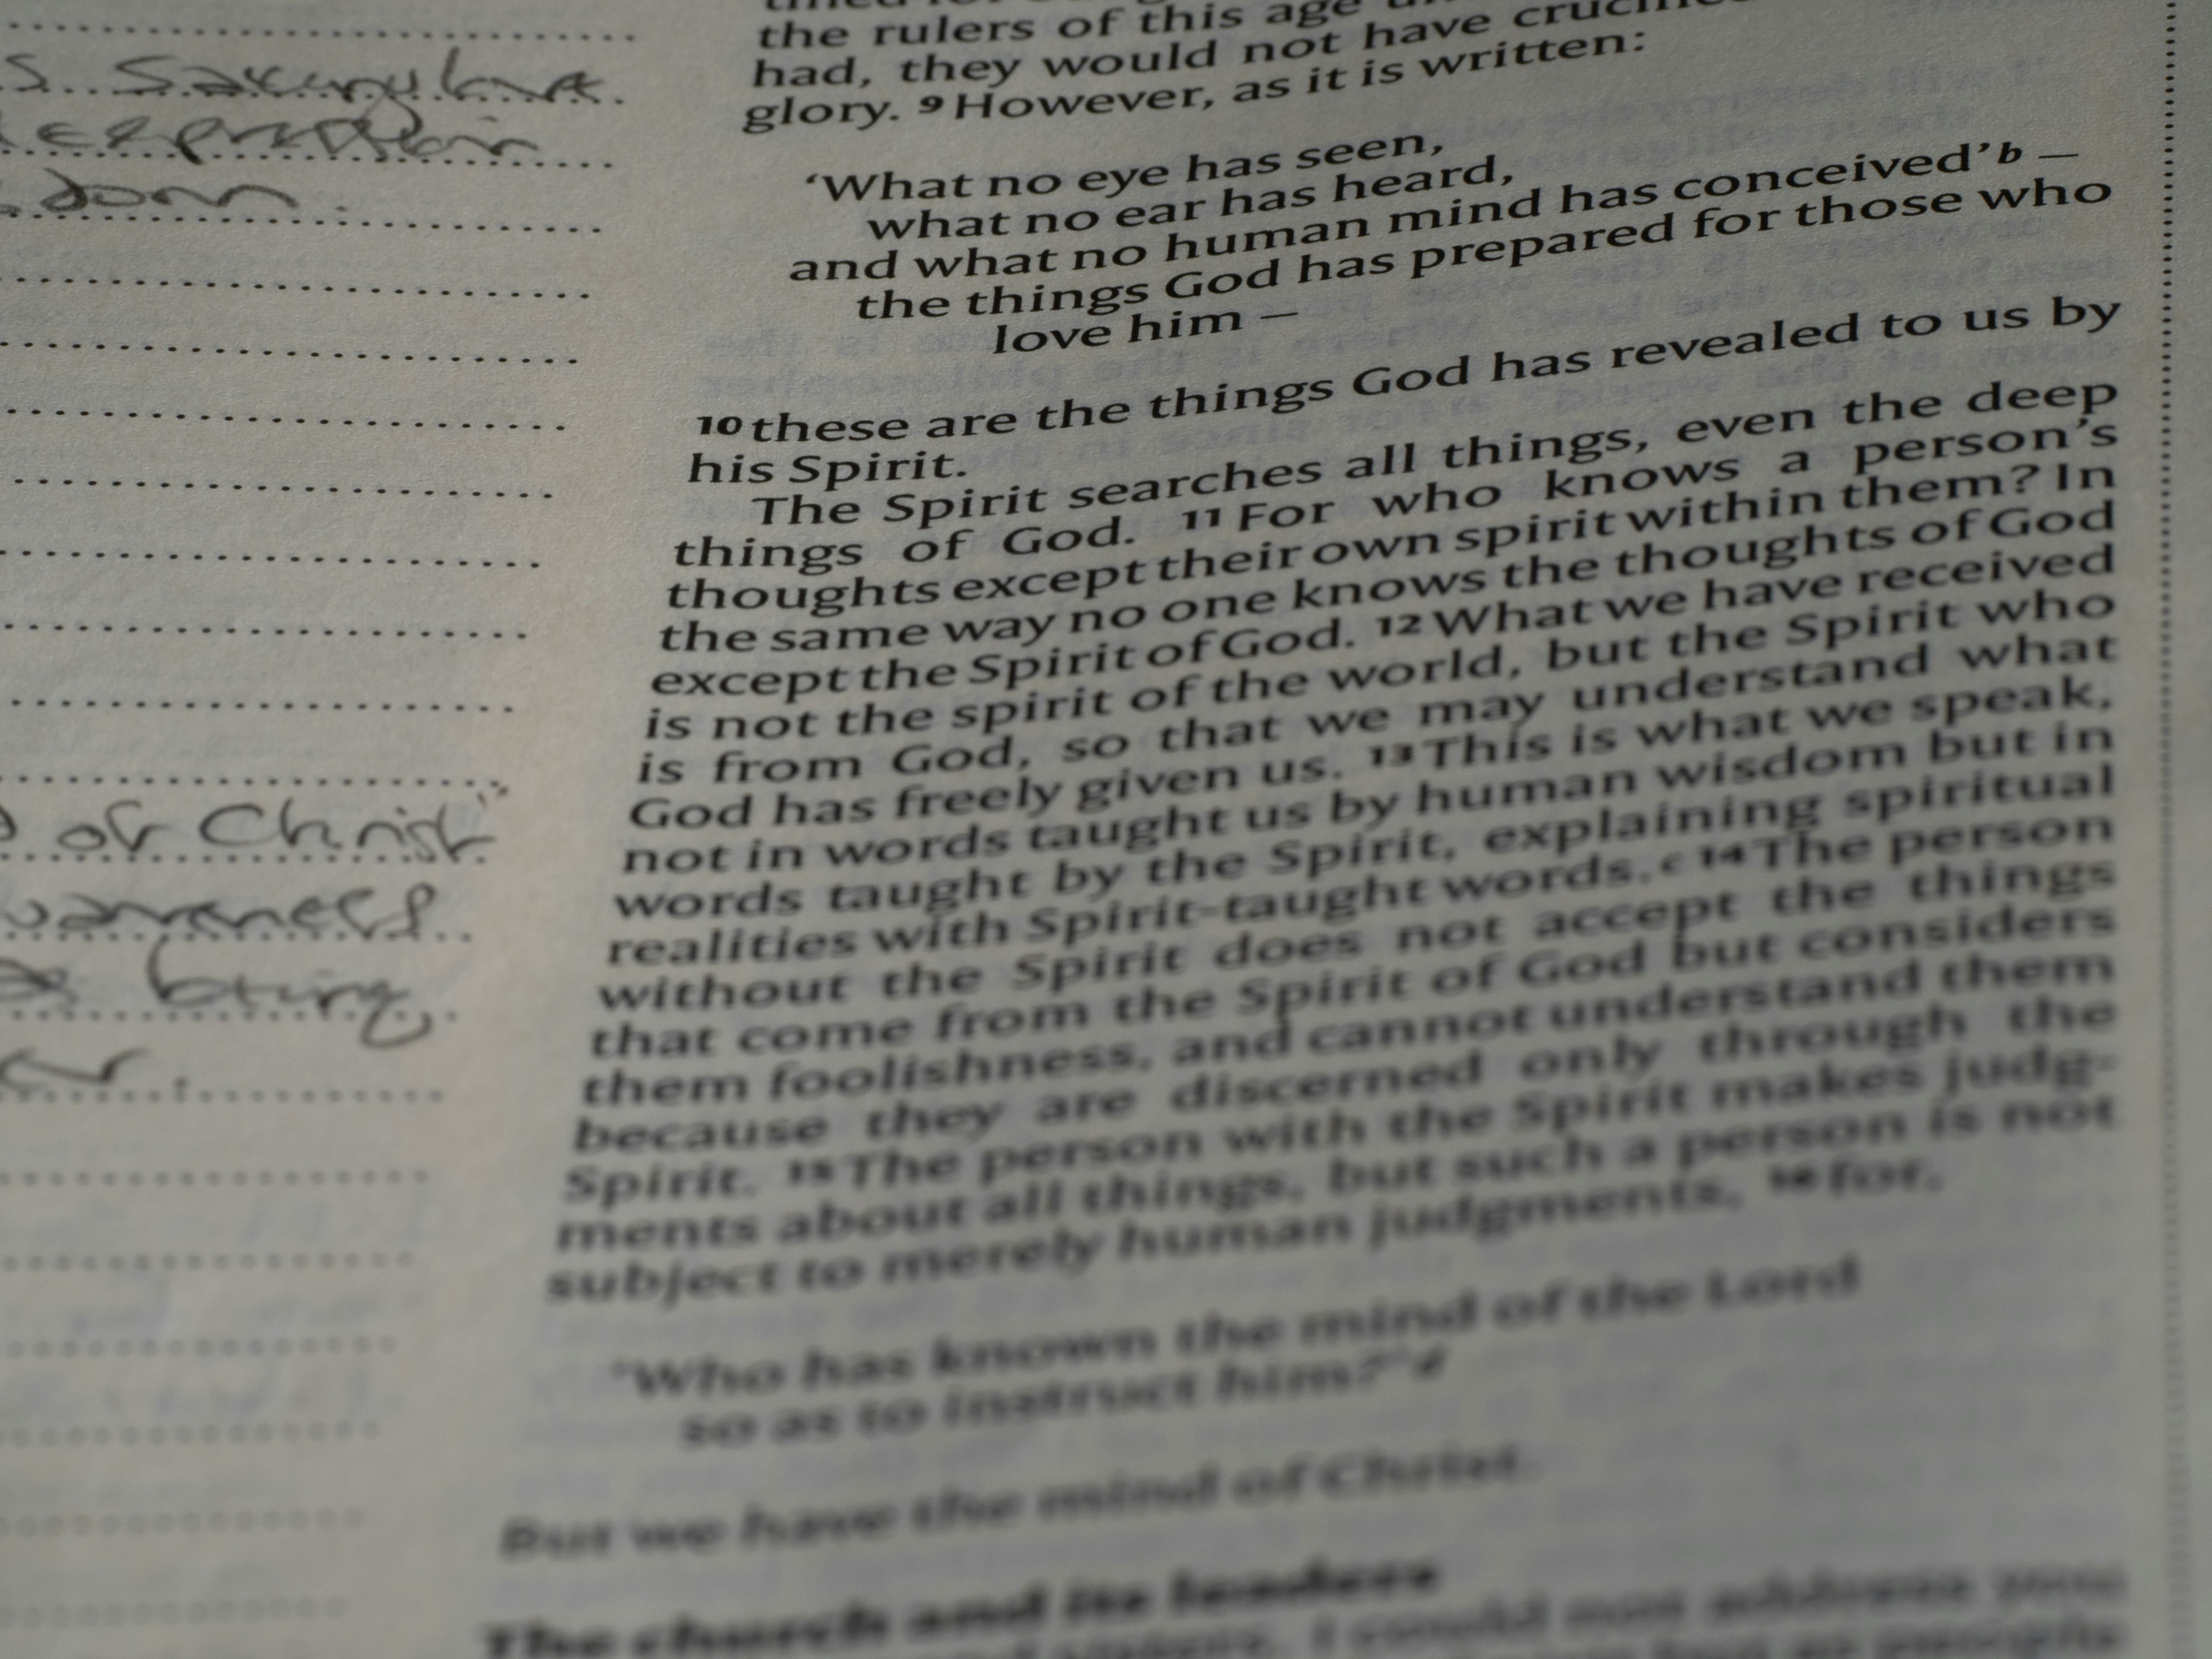 S. Saving love
dom.
of Christ"
being
the rulers of this age
had, they would not have
glory. 9 However, as it is written:
‘What no eye has seen,
what no ear has heard,
and what no human mind has conceived’b —
the things God has prepared for those who
love him —
10 these are the things God has revealed to us by
his Spirit.
The Spirit searches all things, even the deep
things of God. 11 For who knows a person’s
thoughts except their own spirit within them? In
the same way no one knows the thoughts of God
except the Spirit of God. 12 What we have received
is not the spirit of the world, but the Spirit who
is from God, so that we may understand what
God has freely given us. 13 This is what we speak,
not in words taught us by human wisdom but in
words taught by the Spirit, explaining spiritual
realities with Spirit-taught words.c 14 The person
without the Spirit does not accept the things
that come from the Spirit of God but considers
them foolishness, and cannot understand them
because they are discerned only through the
Spirit. 15 The person with the Spirit makes judg-
ments about all things, but such a person is not
subject to merely human judgments, 16 for,
‘Who has known the mind of the Lord
so as to instruct him?’d
But we have the mind of Christ.
The church and its leaders
I could not address you